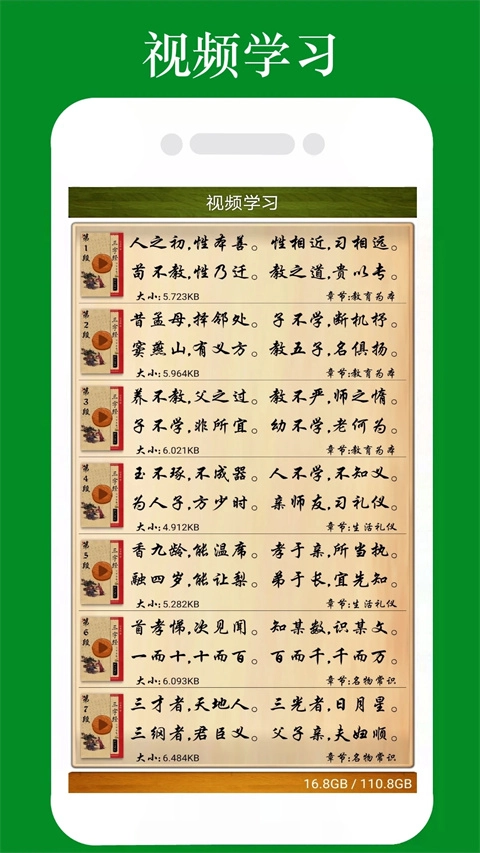 视频学习
视频学习
第1段
三字经
人之初,性本善。性相近,习相远。
苟不教,性乃迁。教之道,贵以专。
大小:5.723KB 章节:教育为本
第2段
三字经
昔孟母,择邻处。子不学,断机杼。
窦燕山,有义方。教五子,名俱扬。
大小:5.964KB 章节:教育为本
第3段
三字经
养不教,父之过。教不严,师之惰。
子不学,非所宜。幼不学,老何为。
大小:6.021KB 章节:教育为本
第4段
三字经
玉不琢,不成器。人不学,不知义。
为人子,方少时。亲师友,习礼仪。
大小:4.912KB 章节:生活礼仪
第5段
三字经
香九龄,能温席。孝于亲,所当执。
融四岁,能让梨。弟于长,宜先知。
大小:5.282KB 章节:生活礼仪
第6段
三字经
首孝悌,次见闻。知某数,识某文。
一而十,十而百。百而千,千而万。
大小:6.093KB 章节:名物常识
第7段
三字经
三才者,天地人。三光者,日月星。
三纲者,君臣义。父子亲,夫妇顺。
大小:6.484KB 章节:名物常识
16.8GB / 110.8GB